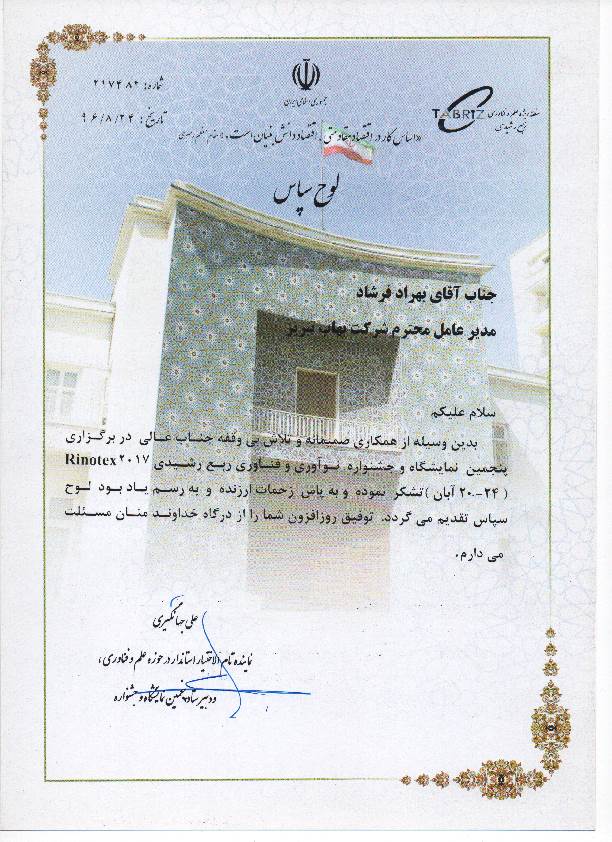 شماره: ۲۱۷۴۸۲
تاریخ: ۹۶/۸/۲۴
جمهوری اسلامی ایران
TABRIZ
منطقه ویژه علم و فناوری
ربع رشیدی
«اساس کار در اقتصاد مقاومتی، اقتصاد دانش بنیان است.» (مقام معظم رهبری)
لوح سپاس
جناب آقای بهراد فرشاد
مدیر عامل محترم شرکت بهاب تبریز
سلام علیکم
بدین وسیله از همکاری صمیمانه و تلاش بی وقفه جناب عالی در برگزاری
پنجمین نمایشگاه و جشنواره نوآوری و فناوری ربع رشیدی Rinotex۲۰۱۷
(۲۰-۲۴ آبان) تشکر نموده و به پاس زحمات ارزنده و به رسم یاد بود لوح
سپاس تقدیم می گردد. توفیق روزافزون شما را از درگاه خداوند منان مسئلت
می دارم.
علی جهانگیری
نماینده تام الاختیار استاندار در حوزه علم و فناوری،
و دبیر ستاد پنجمین نمایشگاه و جشنواره